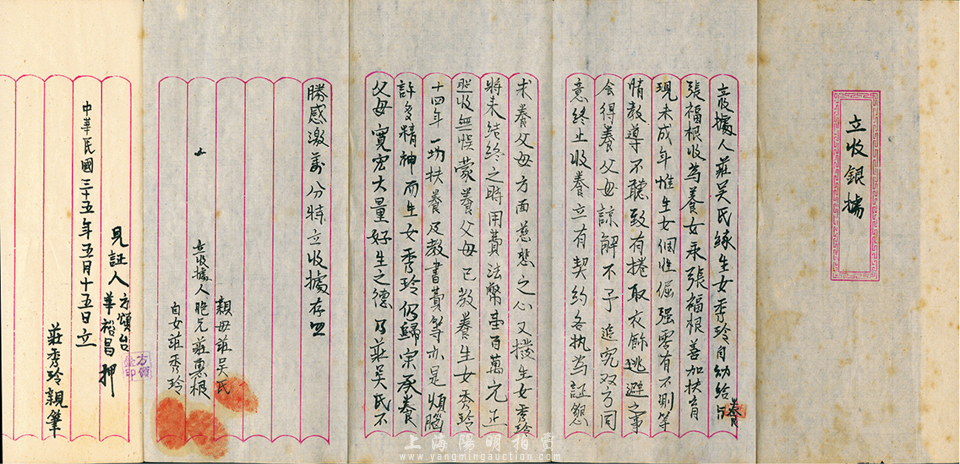 立收銀據
立收據人莊吳氏緣生女秀玲自幼給與
張福根收為養女承張福根善加扶育
現未成年惟生女個性倔强零有不則等
情教導不聽致有捲取衣飾逃避之事
舍得養父母諒解不予追究双方同
意終止收養立有契約各执为証懇
求養父母方面慈悲之心又撥生女秀玲
將未结終之時用費法幣壹百萬元正
照收無悮蒙養父母已教養生女秀玲
十四年一切扶養及教書費等亦是煩腦
許多精神而生女秀玲仍歸宗承養
父母寬宏大量好生之德乃莊吳氏不
勝感激萬分特立收據存照
親母莊吳氏
立收據人胞兄莊惠根
自女莊秀玲
見証人方頌台
華裕昌押
中華民國三十五年五月十五日立
莊秀玲親筆
上海陽明拍賣
www.yangmingauction.com